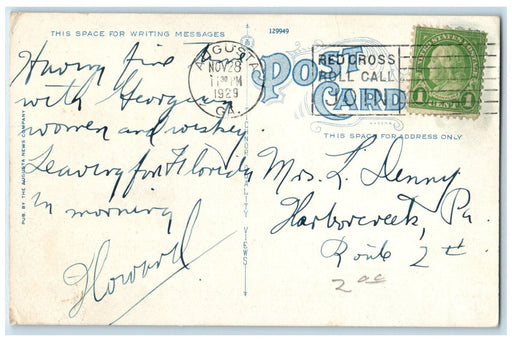 THIS SPACE FOR WRITING MESSAGES
129949
AUGUSTA
NOV 28
1929
GA.
POST
CARD
RED CROSS
ROLL CALL
JOIN
UNITED STATES POSTAGE
1 CENT 1
THIS SPACE FOR ADDRESS ONLY
PUB. BY THE AUGUSTA NEWS COMPANY
LOCALITY VIEWS
Having fine
with Georgia
women and whiskey.
Leaving for Florida
in morning
Howard
Mrs. L. Denny
Harborcreek, Pa.
Route 2
2 00